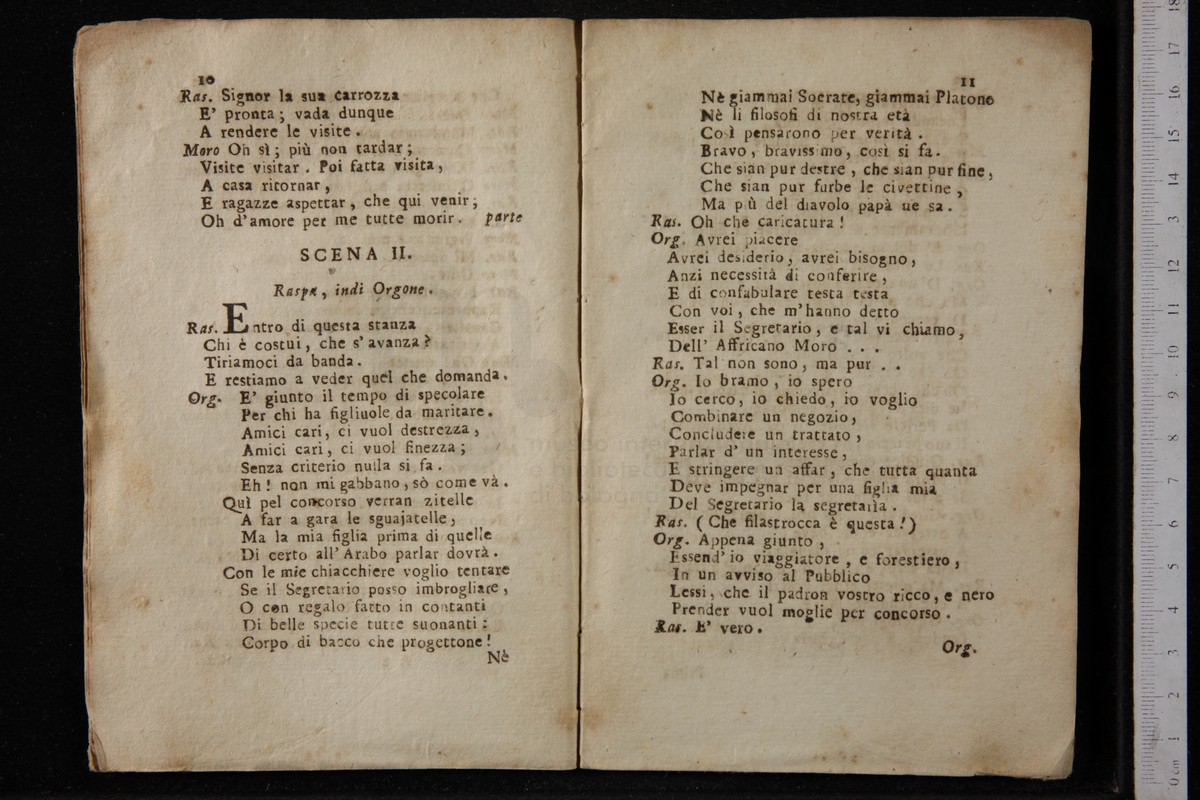 10
Ras. Signor la sua carrozza
E' pronta; vada dunque
A rendere le visite.
Moro Oh sì; più non tardar;
Visite visitar. Poi fatta visita,
A casa ritornar,
E ragazze aspettar, che qui venir;
Oh d'amore per me tutte morir. parte
SCENA II.
Raspa, indi Orgone.
Ras. Entro di questa stanza
Chi è costui, che s'avanza?
Tiriamoci da banda.
E restiamo a veder quel che domanda.
Org. E' giunto il tempo di specolare
Per chi ha figliuole da maritare.
Amici cari, ci vuol destrezza,
Amici cari, ci vuol finezza;
Senza criterio nulla si fa.
Eh! non mi gabbano, sò come và.
Quì pel concorso verran zitelle
A far a gara le sguajatelle,
Ma la mia figlia prima di quelle
Di certo all' Arabo parlar dovrà.
Con le mie chiacchiere voglio tentare
Se il Segretario posso imbrogliare,
O con regalo fatto in contanti
Di belle specie tutte suonanti:
Corpo di bacco che progettone!
Nè
11
Nè giammai Socrate, giammai Platone
Nè li filosofi di nostra età
Così pensarono per verità.
Bravo, bravissimo, così si fa.
Che sian pur destre, che sian pur fine,
Che sian pur furbe le civettine,
Ma più del diavolo papà ne sa.
Ras. Oh che caricatura!
Org. Avrei piacere
Avrei desiderio, avrei bisogno,
Anzi necessità di conferire,
E di confabulare testa testa
Con voi, che m'hanno detto
Esser il Segretario, e tal vi chiamo,
Dell' Affricano Moro . . .
Ras. Tal non sono, ma pur . .
Org. Io bramo, io spero
Io cerco, io chiedo, io voglio
Combinare un negozio,
Concludere un trattato,
Parlar d' un interesse,
E stringere un affar, che tutta quanta
Deve impegnar per una figlia mia
Del Segretario la segretaria.
Ras. (Che filastrocca è questa!)
Org. Appena giunto,
Essend' io viaggiatore, e forestiero,
In un avviso al Pubblico
Lessi, che il padron vostro ricco, e nero
Prender vuol moglie per concorso.
Ras. E' vero.
Org.